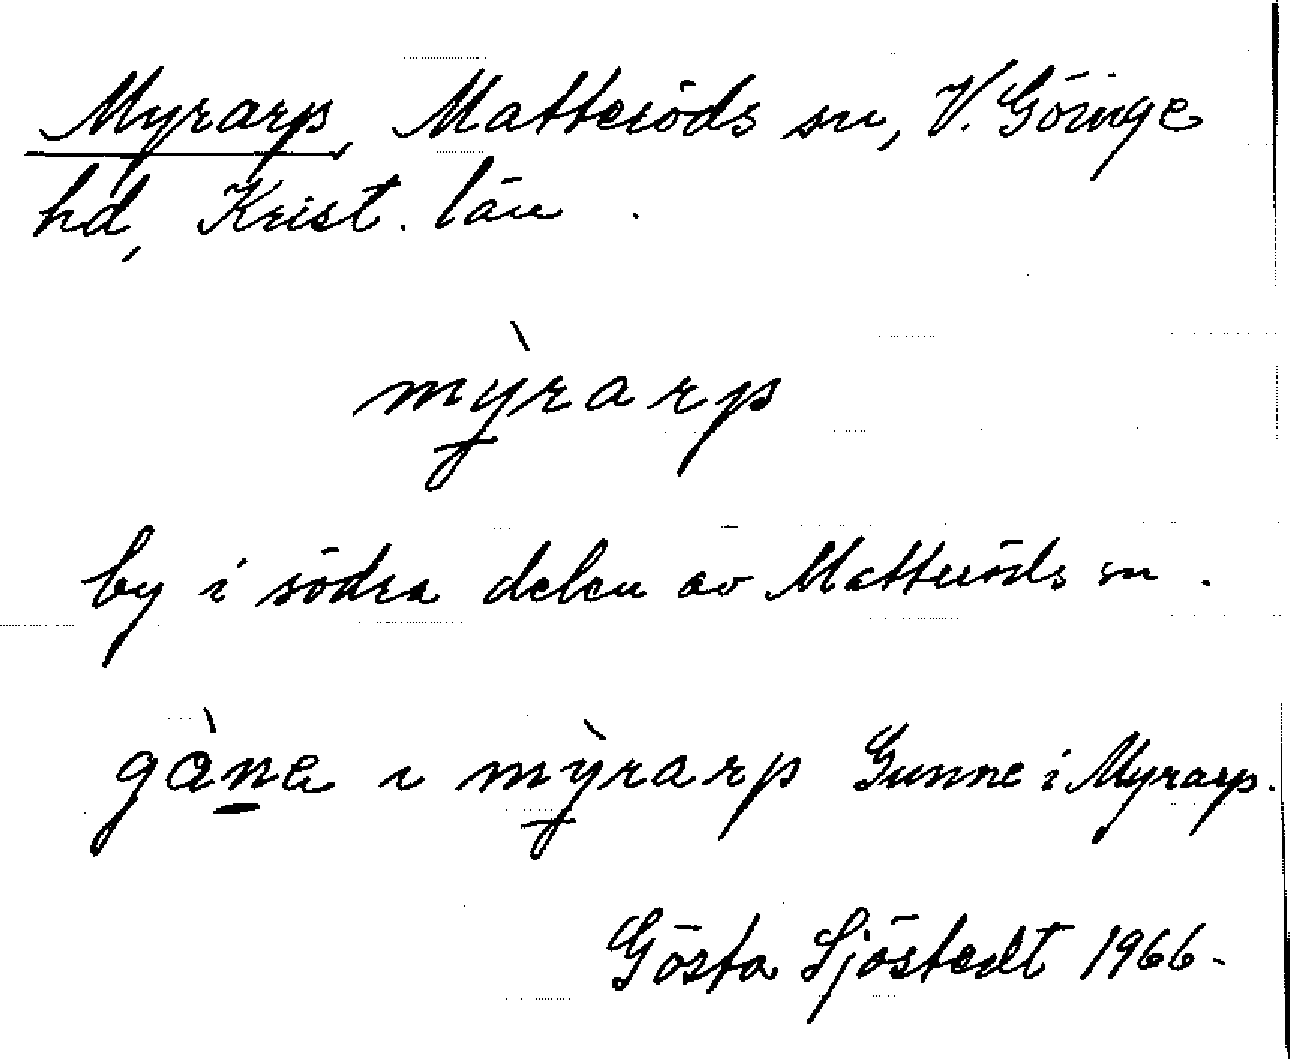 Myrarp, Matteröds sn, V. Göinge
hd, Krist. län.
mỳrarp
by i södra delen av Matteröds sn.
gàna i mỳrarp Gunne i Myrarp.
Gösta Sjöstedt 1966-